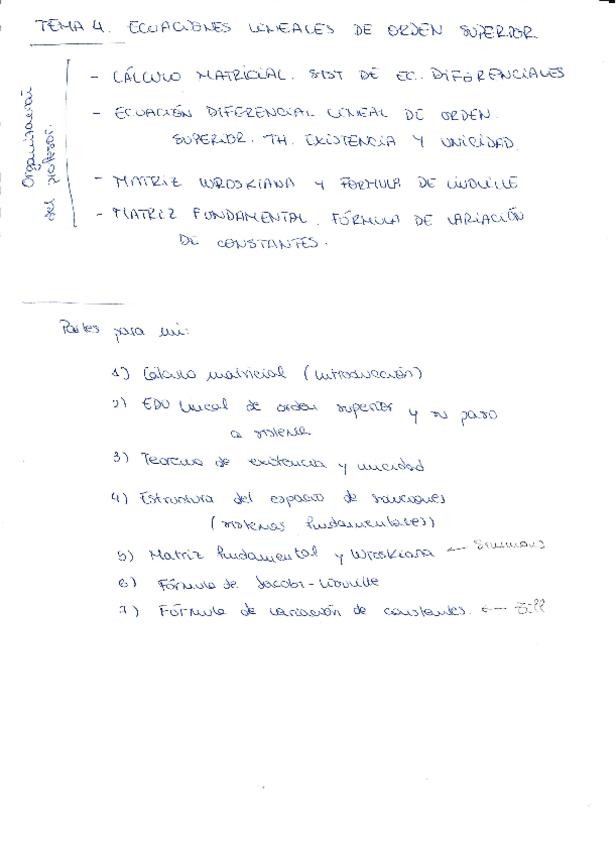 TEMA 4. ECUACIONES LINEALES DE ORDEN SUPERIOR
Organización
del profesor.
- CÁLCULO MATRICIAL. SIST DE EC. DIFERENCIALES
- ECUACIÓN DIFERENCIAL LINEAL DE ORDEN
SUPERIOR. TH. EXISTENCIA Y UNICIDAD
- MATRIZ WROSKIANA Y FORMULA DE LIOUVILLE
- MATRIZ FUNDAMENTAL. FÓRMULA DE VARIACIÓN
DE CONSTANTES.
Partes para mi:
1) Cálculo matricial (introducción)
2) EDO lineal de orden superior y su paso
a sistema
3) Teorema de existencia y unicidad
4) Estructura del espacio de soluciones
(sistemas fundamentales)
5) Matriz fundamental y Wroskiana ← Simmons
6) Fórmula de Jacobi-Liouville
7) Fórmula de variación de constantes. ← Zill